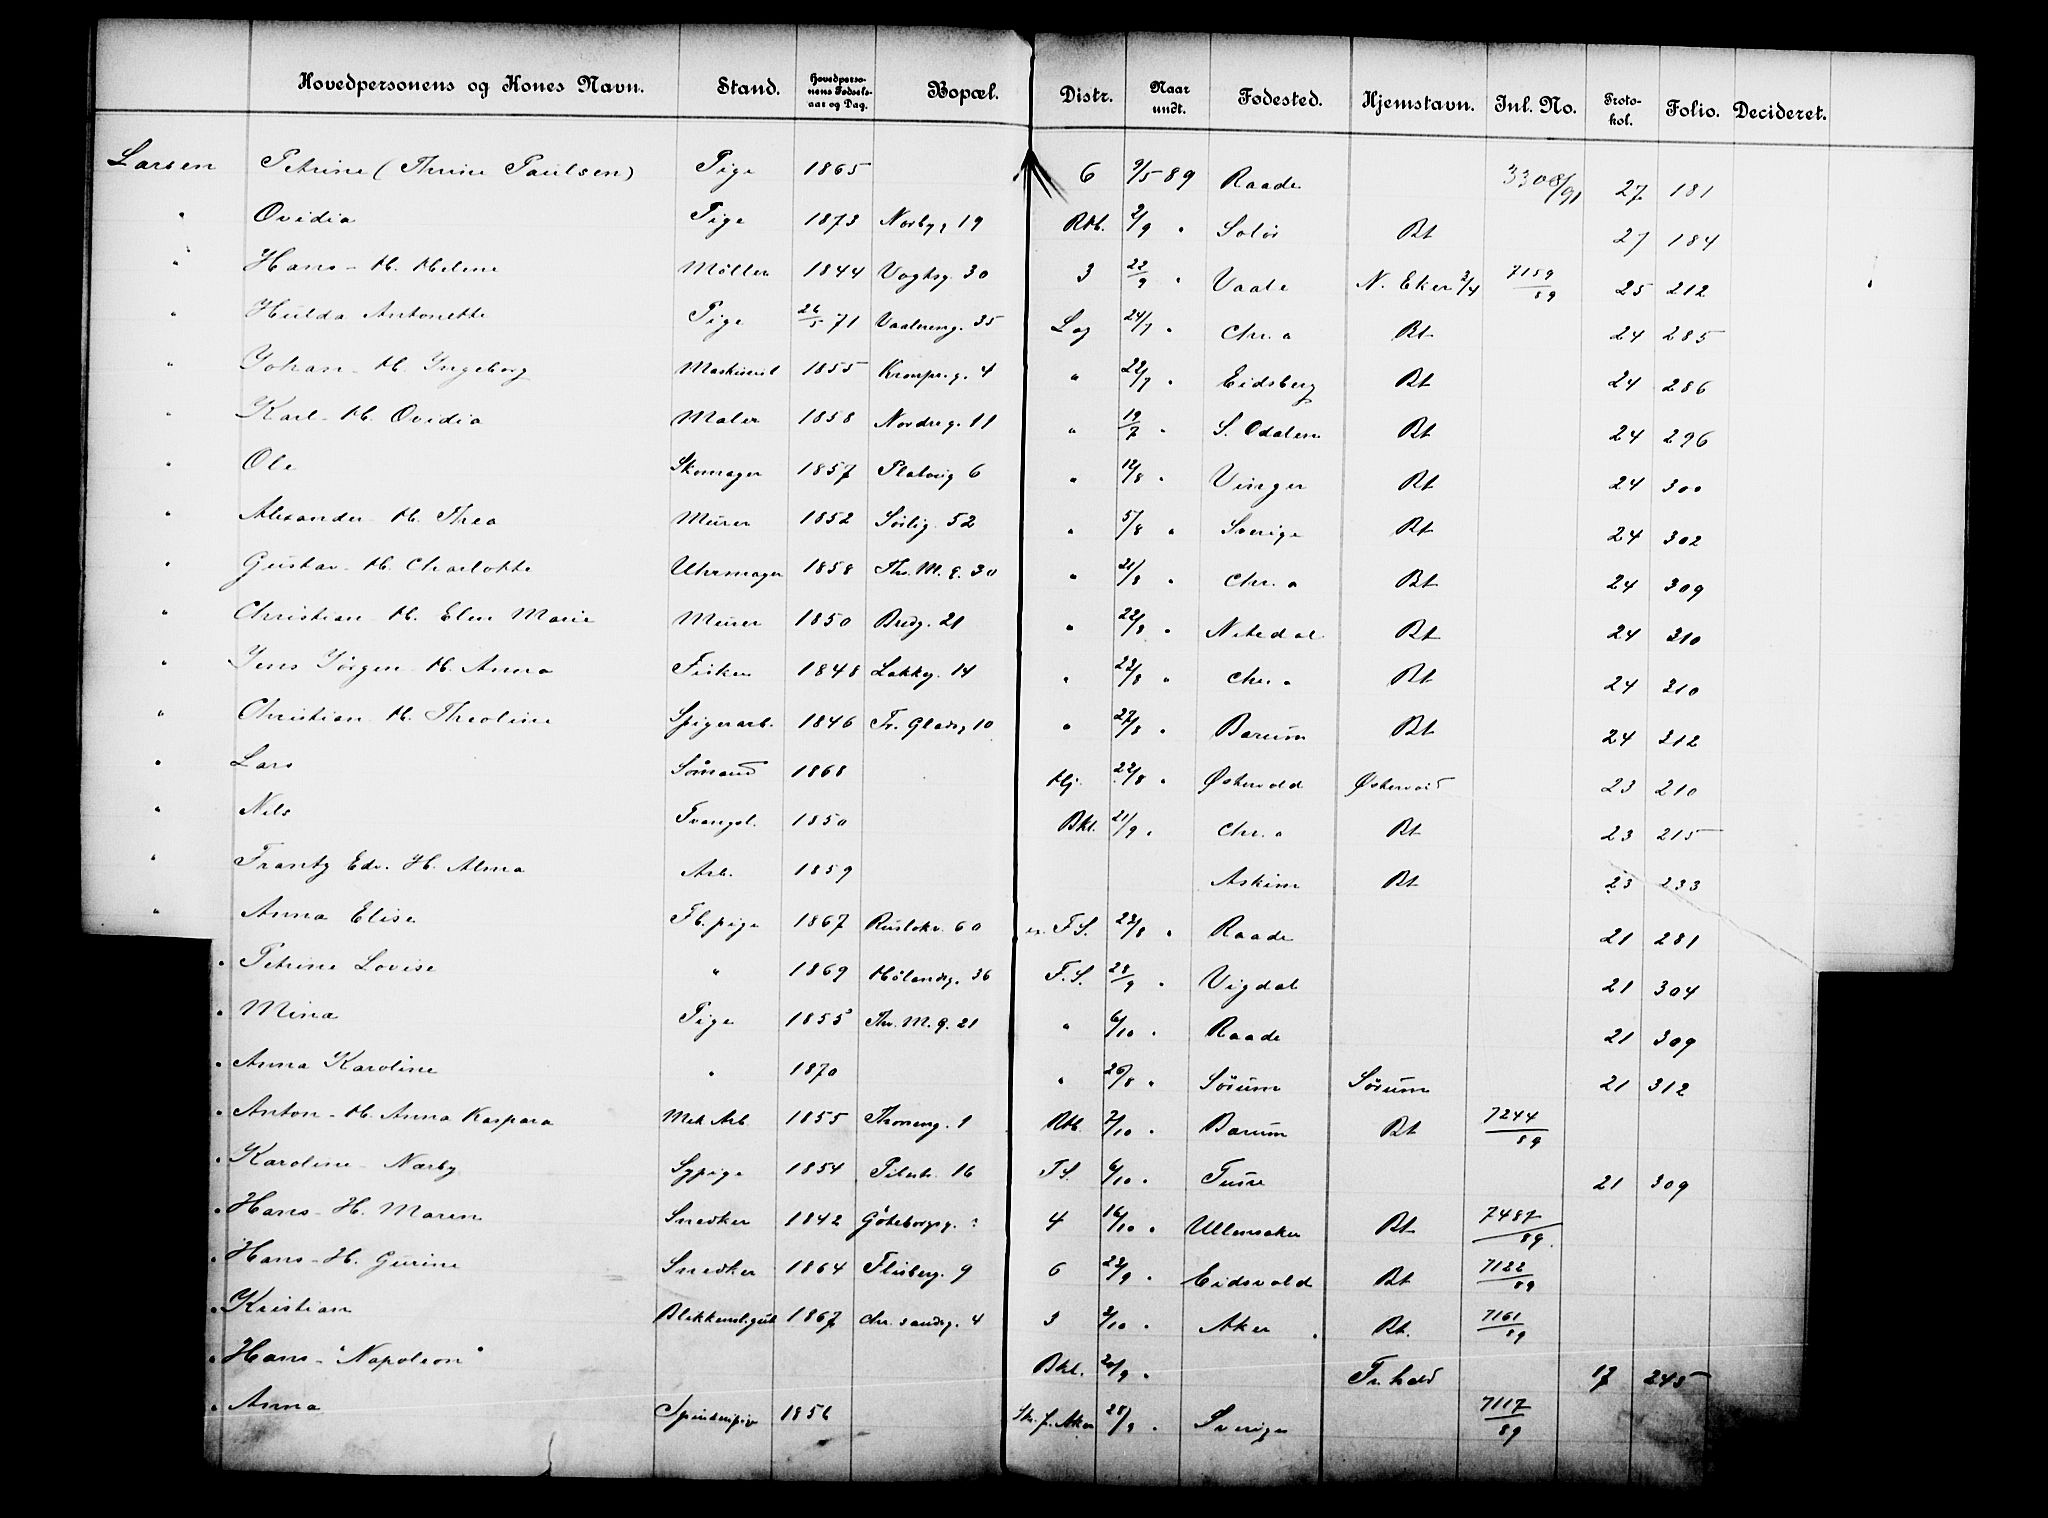 Hovedpersonens og Kones Navn. Stand. Hovedperso-nens Fødsels-aar og Dag. Bopæl. Distr. Naar undt. Fødested. Hjemstavn. Inl. No. Proto-kol. Folio. Decideret.
Larsen Petrine (Thrine Paulsen) Pige 1865 6 9/5 89 Raade 3308/91 27 181
" Ovidia Pige 1873 Norbyg 19 Rtb. 2/9 " Solør Bt 27 184
" Hans - H. Helene Møller 1844 Vogtsg. 30 3 22/9 " Vaale N. Eker 3/4 7159/89 25 212
" Hulda Antonette Pige 26/5 71 Vaalereng. 35 Log 24/7 " Chr. a Bt 24 285
" Johan - H. Ingeborg 1855 Kronpr.g. 4 " 22/7 " Eidsberg Bt 24 286
" Karl - H. Ovidia Maler 1858 Nordreg. 11 " 19/7 " S. Odalen Bt 24 296
" Ole Skomager 1857 6 " 12/8 " Vinger Bt 24 300
" Alexander - H. Thea Murer 1852 Sørlig. 52 " 5/8 " Sverige Bt 24 302
" Gustav - H. Charlotte Uhrmager 1858 Thv. M. g. 30 " 21/8 " Chr. a Bt 24 309
" Christian - H. Elen Marie Murer 1850 Bredg. 21 " 22/8 " Nitedal Bt 24 310
" Jens Jørgen - H. Anna Fisker 1848 Lakkeg. 14 " 22/8 " Chr. a Bt 24 310
" Christian - H. Theoline Spigerarb. 1846 Fr. Gladsg 10 " 27/8 " Barum Bt 24 312
" Lars Sømand 1868 Hj. 22/8 " Østervold Østervold 23 210
" Nils Tvangsl. 1850 Bkl. 21/9 " Chr. a Bt 23 215
" Frantz Edv. H. Alma Arb. 1859 Askim Bt 23 233
" Anna Elise Fb. pige 1867 Rusløkv. 60 F.S. 23/8 " Raade 21 281
" Petrine Lovise " 1869 Hølandsg. 36 F.S. 28/9 " Vigdal 21 304
" Mina Pige 1855 Thv. M. g. 21 " 6/10 " Raade 21 309
" Anna Karoline " 1870 " 26/8 " Sørum Sørum 21 312
" Anton - H. Anna Kaspara Mek Arb 1855 1 Rtb. 7/10 " Barum Bt 7244/89
" Karoline - Nærby Sypige 1854 Pilestr. 16 F.S. 6/10 " 21 309
" Hans - H. Maren Snedker 1842 Göteborgsg. ? 4 16/10 " Ullensaker Bt 7487/89
" Hans - H. Gurine Snedker 1864 Flisberg. 9 6 22/9 " Eidsvold Bt 7122/89
" Kristian 1867 Chr. sandsg. 4 3 2/10 " Aker Bt. 7161/89
" Hans - "Napoleon" Bkl. 20/9 " Fr. hald 17 245
" Anna 1856 Str. f. Aker 28/9 " Sverige 7117/89